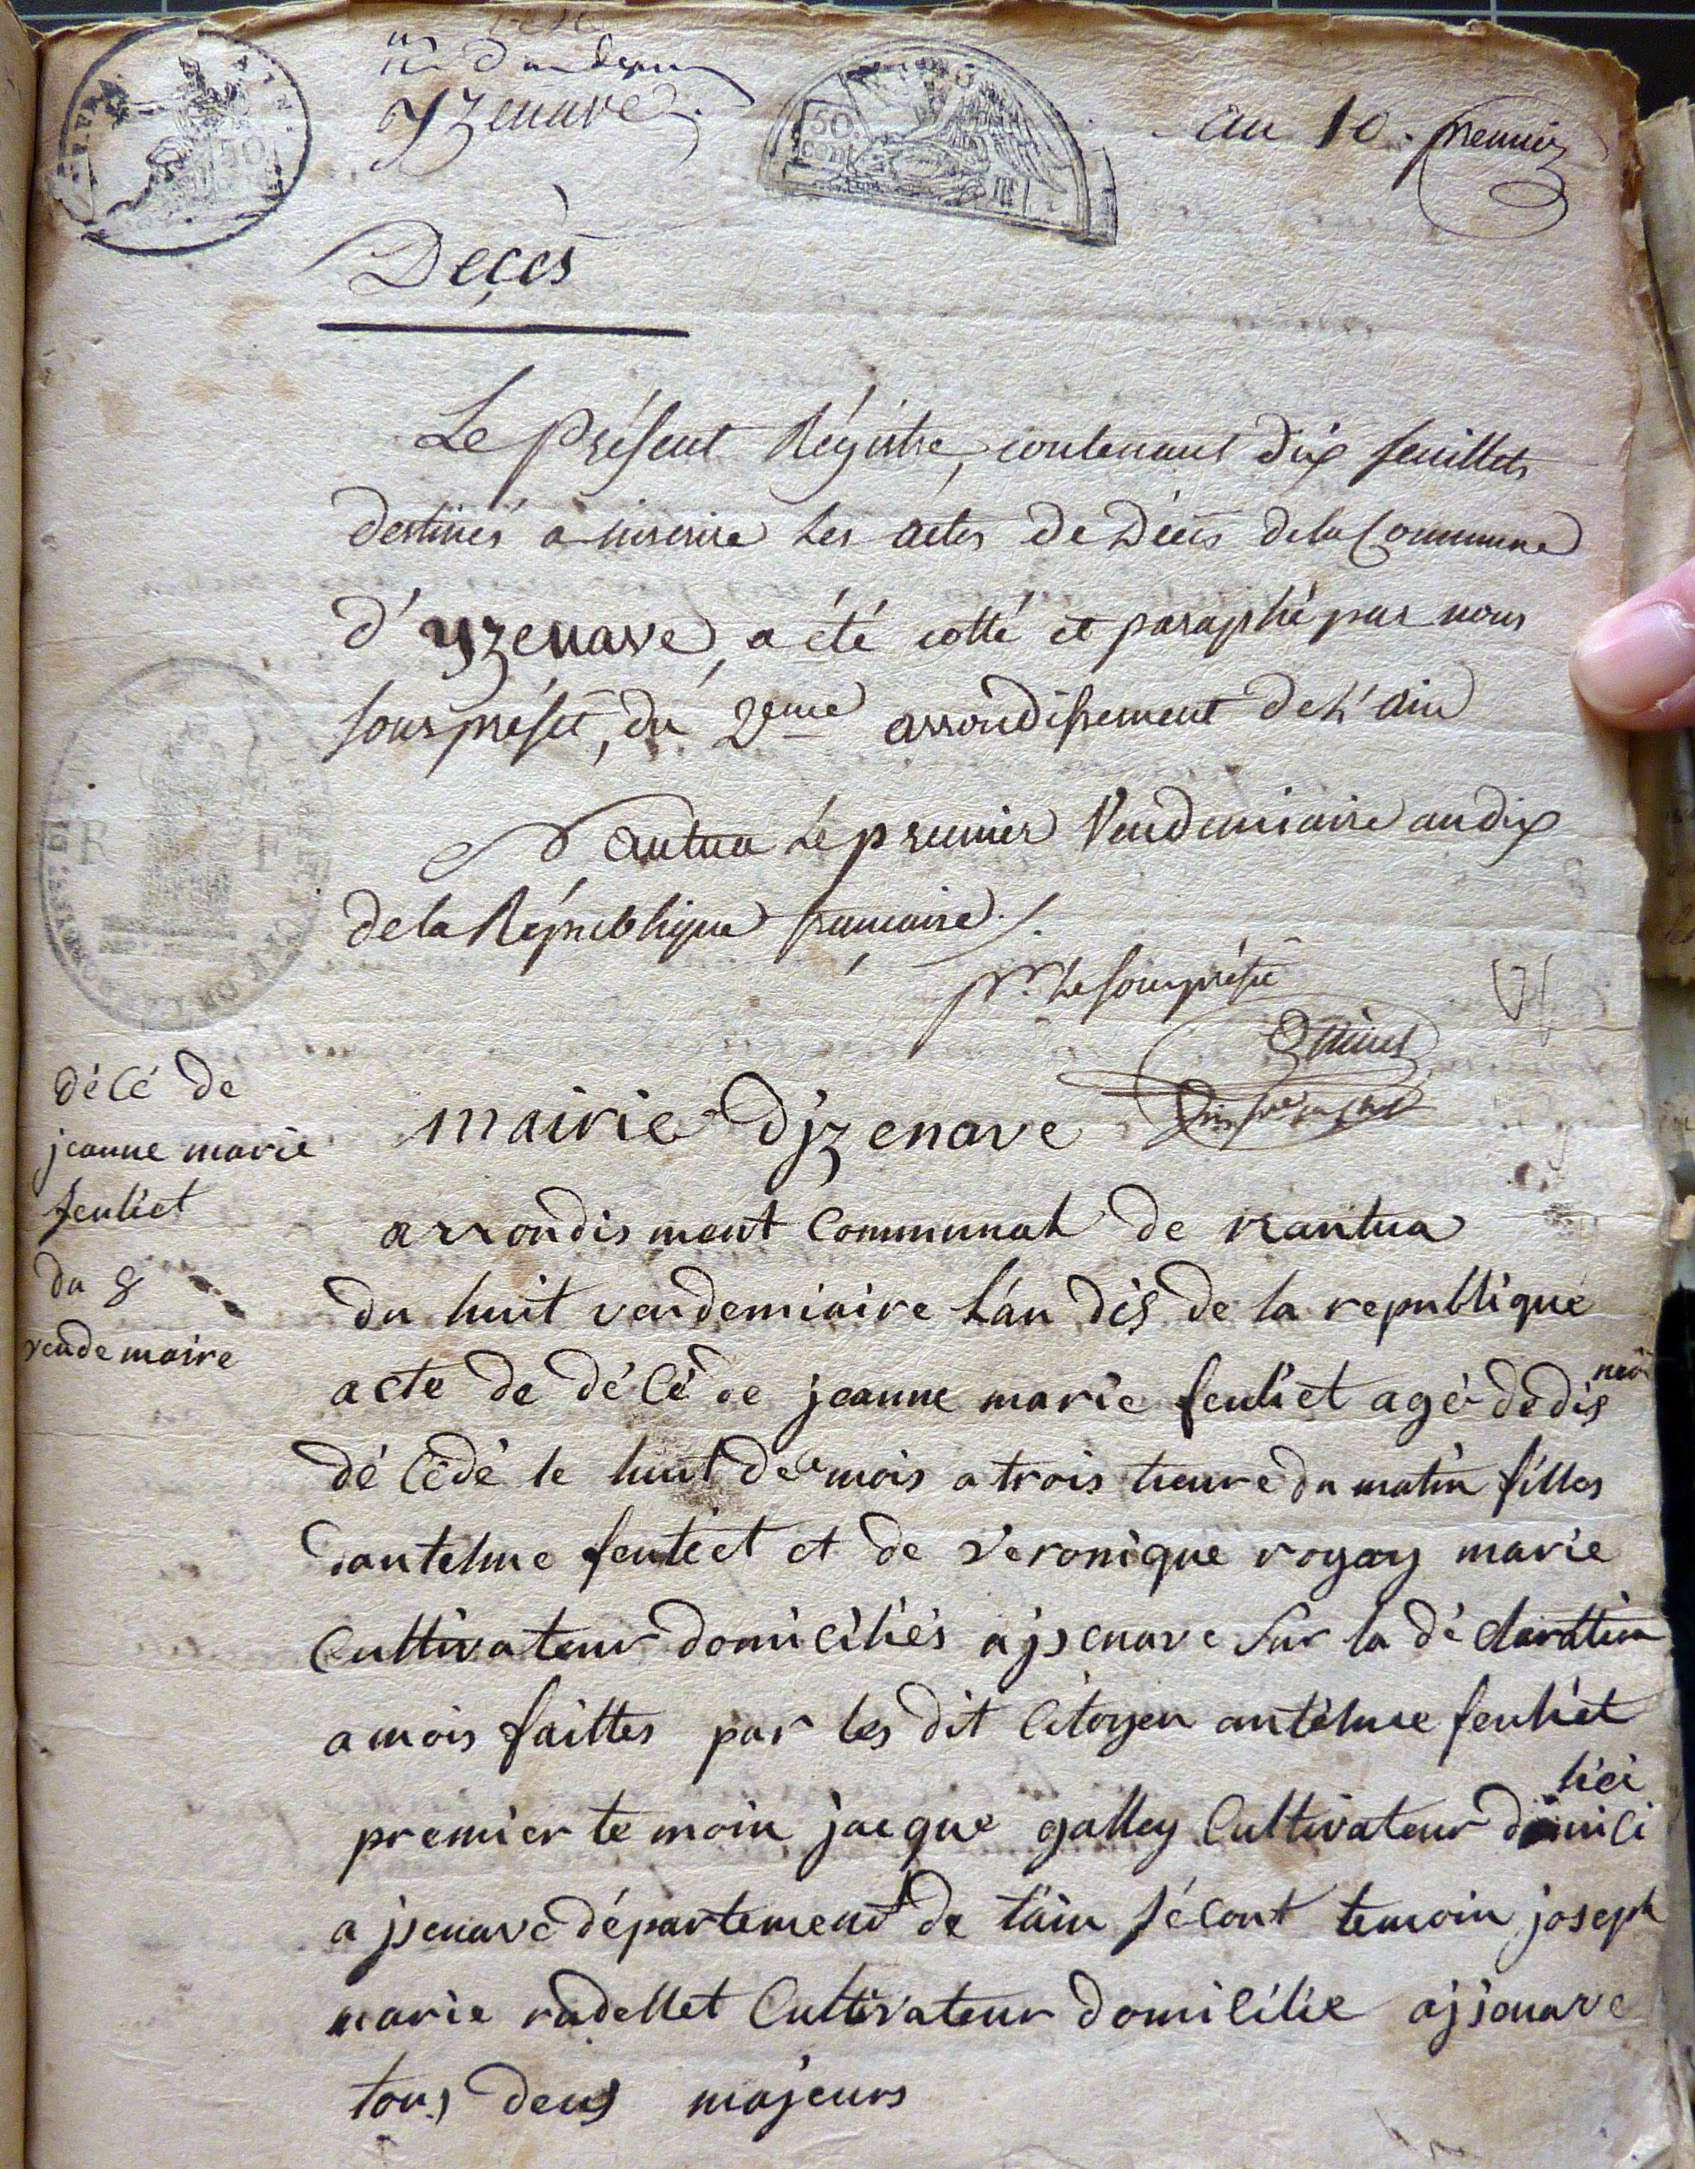 yzenave
50 cent
an 10. premier
Deçès
Le Présent Régistre, contenant dix feuillets
destinés a inscrire les actes de Décès de la Commune
d'yzenave, a été cotté et paraphé par nous
sous préfet, du 2eme arrondissement de L'ain
Nantua Le premier Vendemiaire an dix
de la République francaise ./.
pr. Le sous préfet
décé de
jeanne marie
feuliet
du 8
vende maire
mairie djzenave
arrondis ment Communal de nantua
du huit vendemiaire lan dis de la republique
acte de décé de jeanne marie feuliet agé de dis
décédé le huit de ce mois a trois heure du matin filles
dantelme feuliet et de veronique royay marie
Cultivateur domiciliés a jsenave sur la déclaration
a mois faittes par les dit Citoyen antelme feuliet
premier temoin jacque galley Cultivateur domicilici
a jsenave département de lain sécont temoin joseph
marie radellet Cultivateur domicilie a jsenave
tous deus majeurs